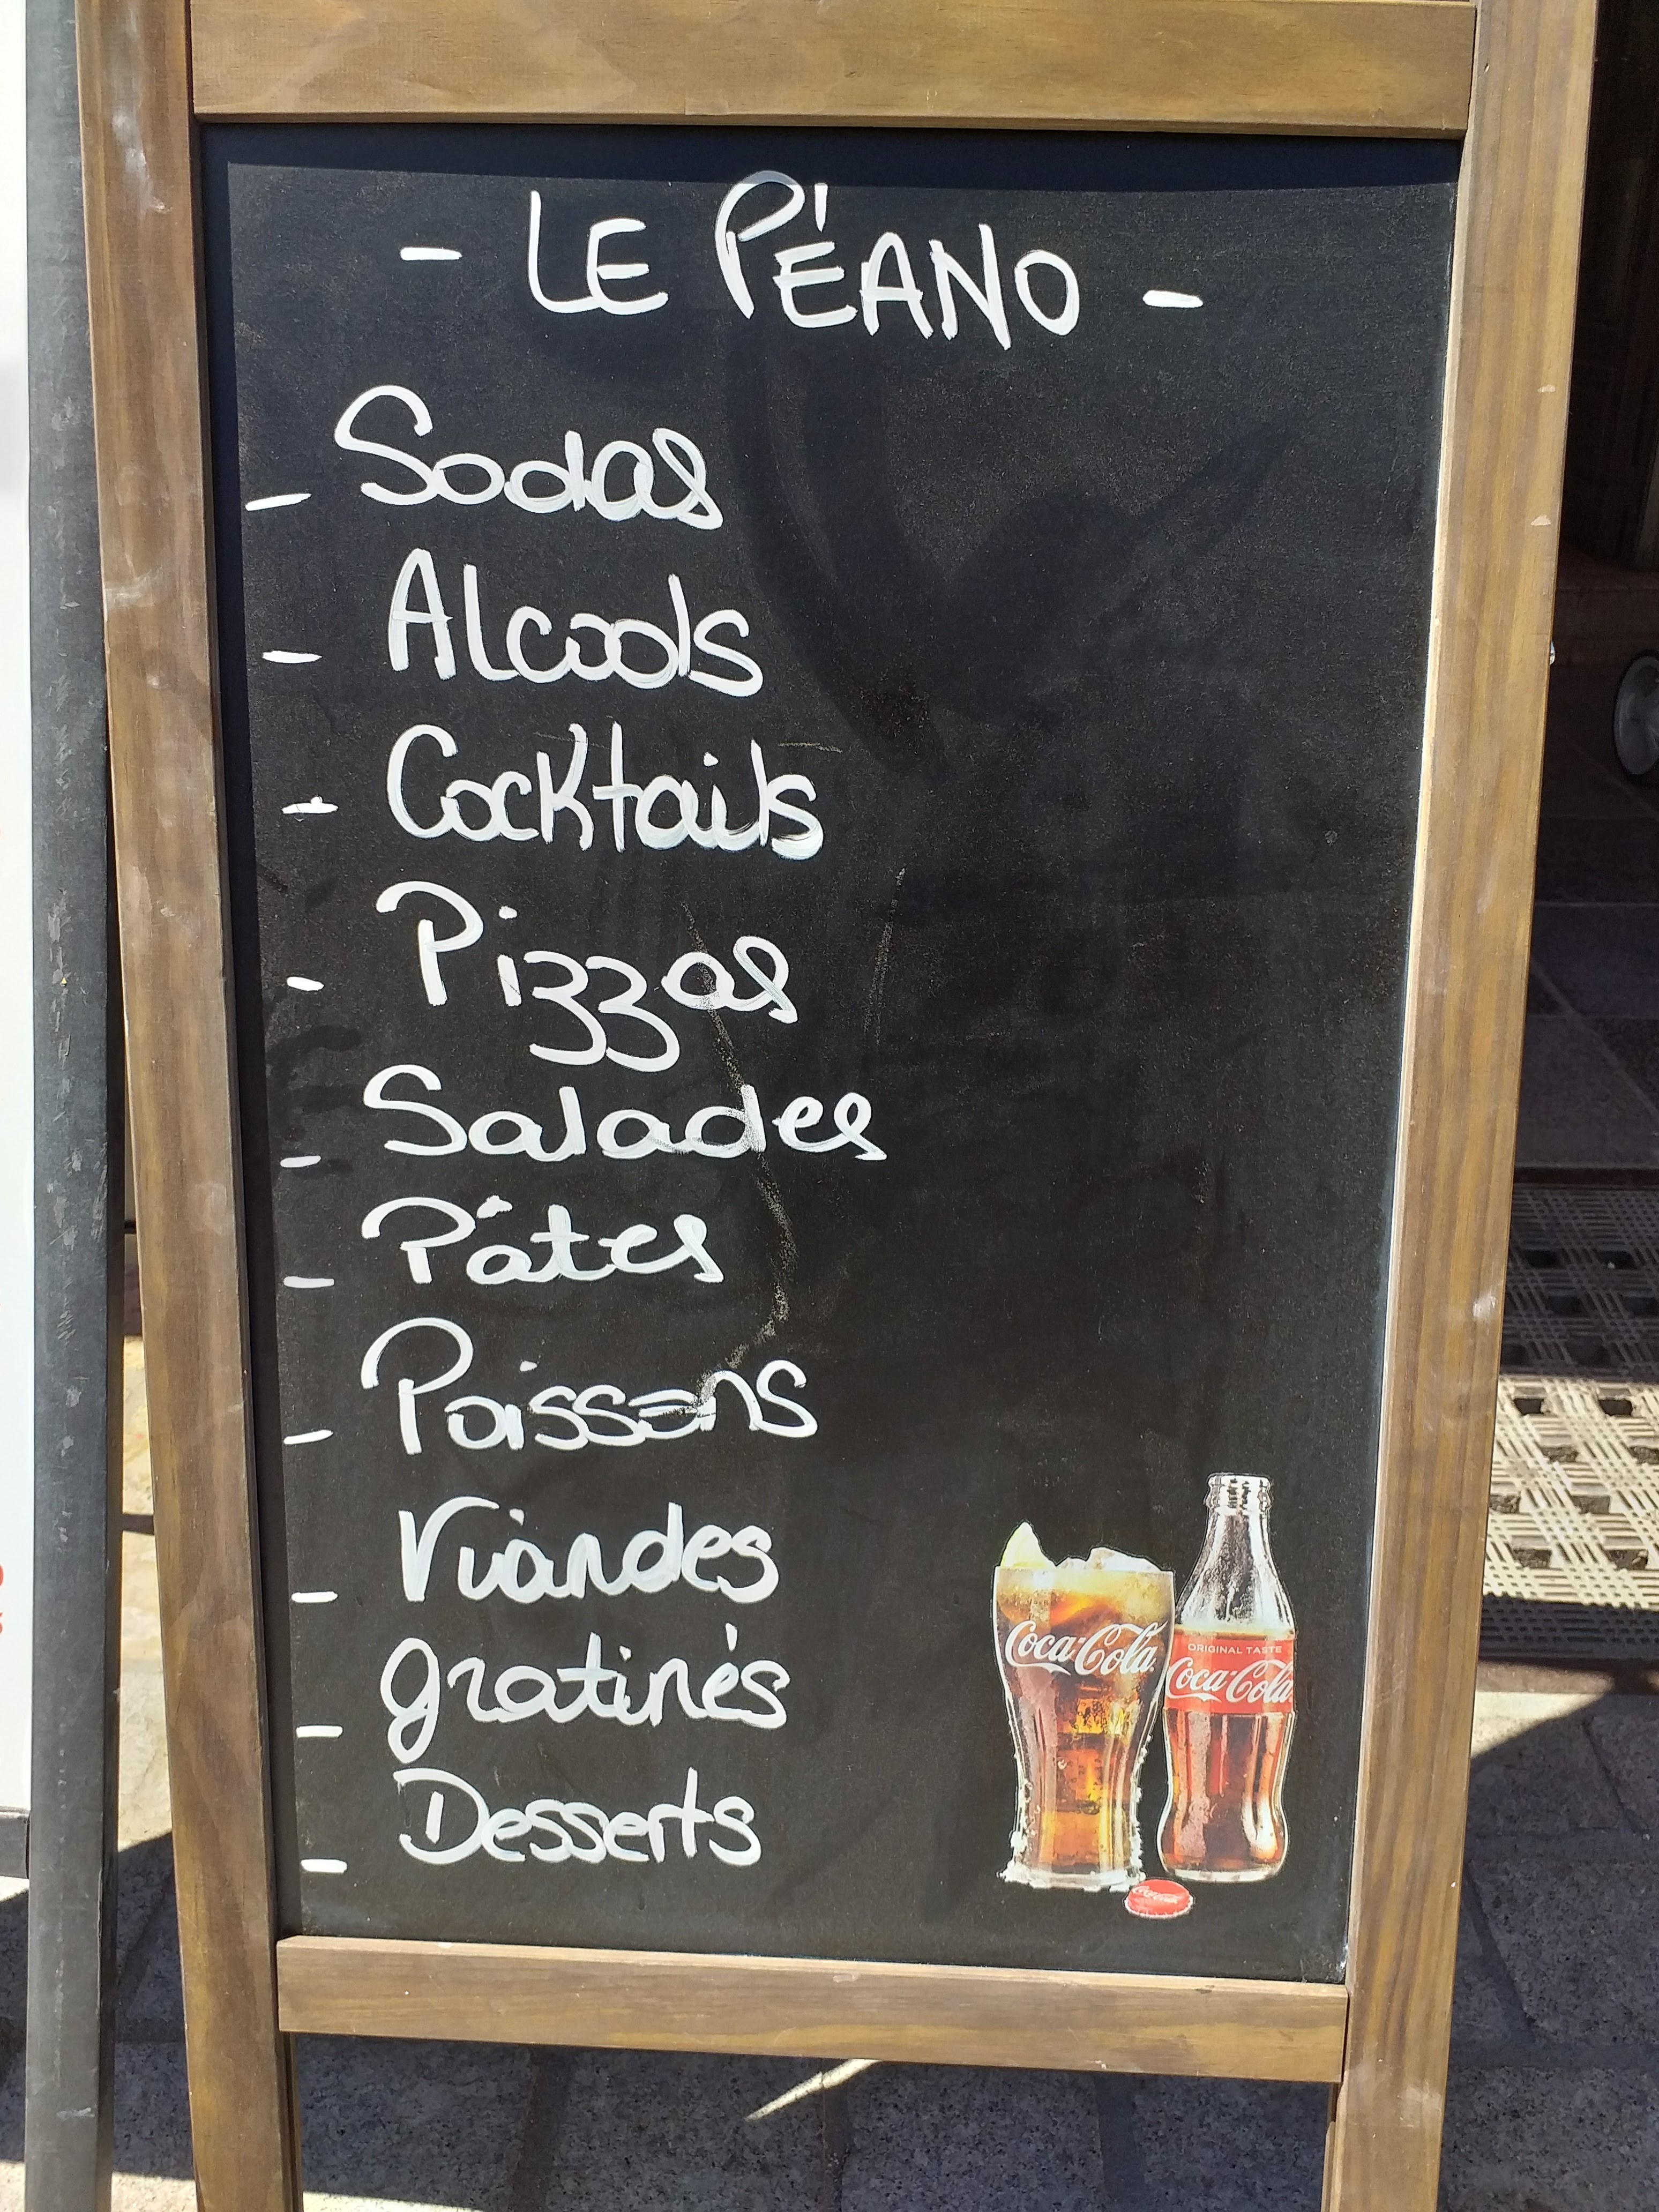 - LE PÉANO -
- Sodas
- Alcools
- Cocktails
- Pizzas
- Salades
- Pâtes
- Poissons
- Viandes
- gratinés
- Desserts
Coca-Cola
ORIGINAL TASTE
Coca-Cola
Coca-Cola